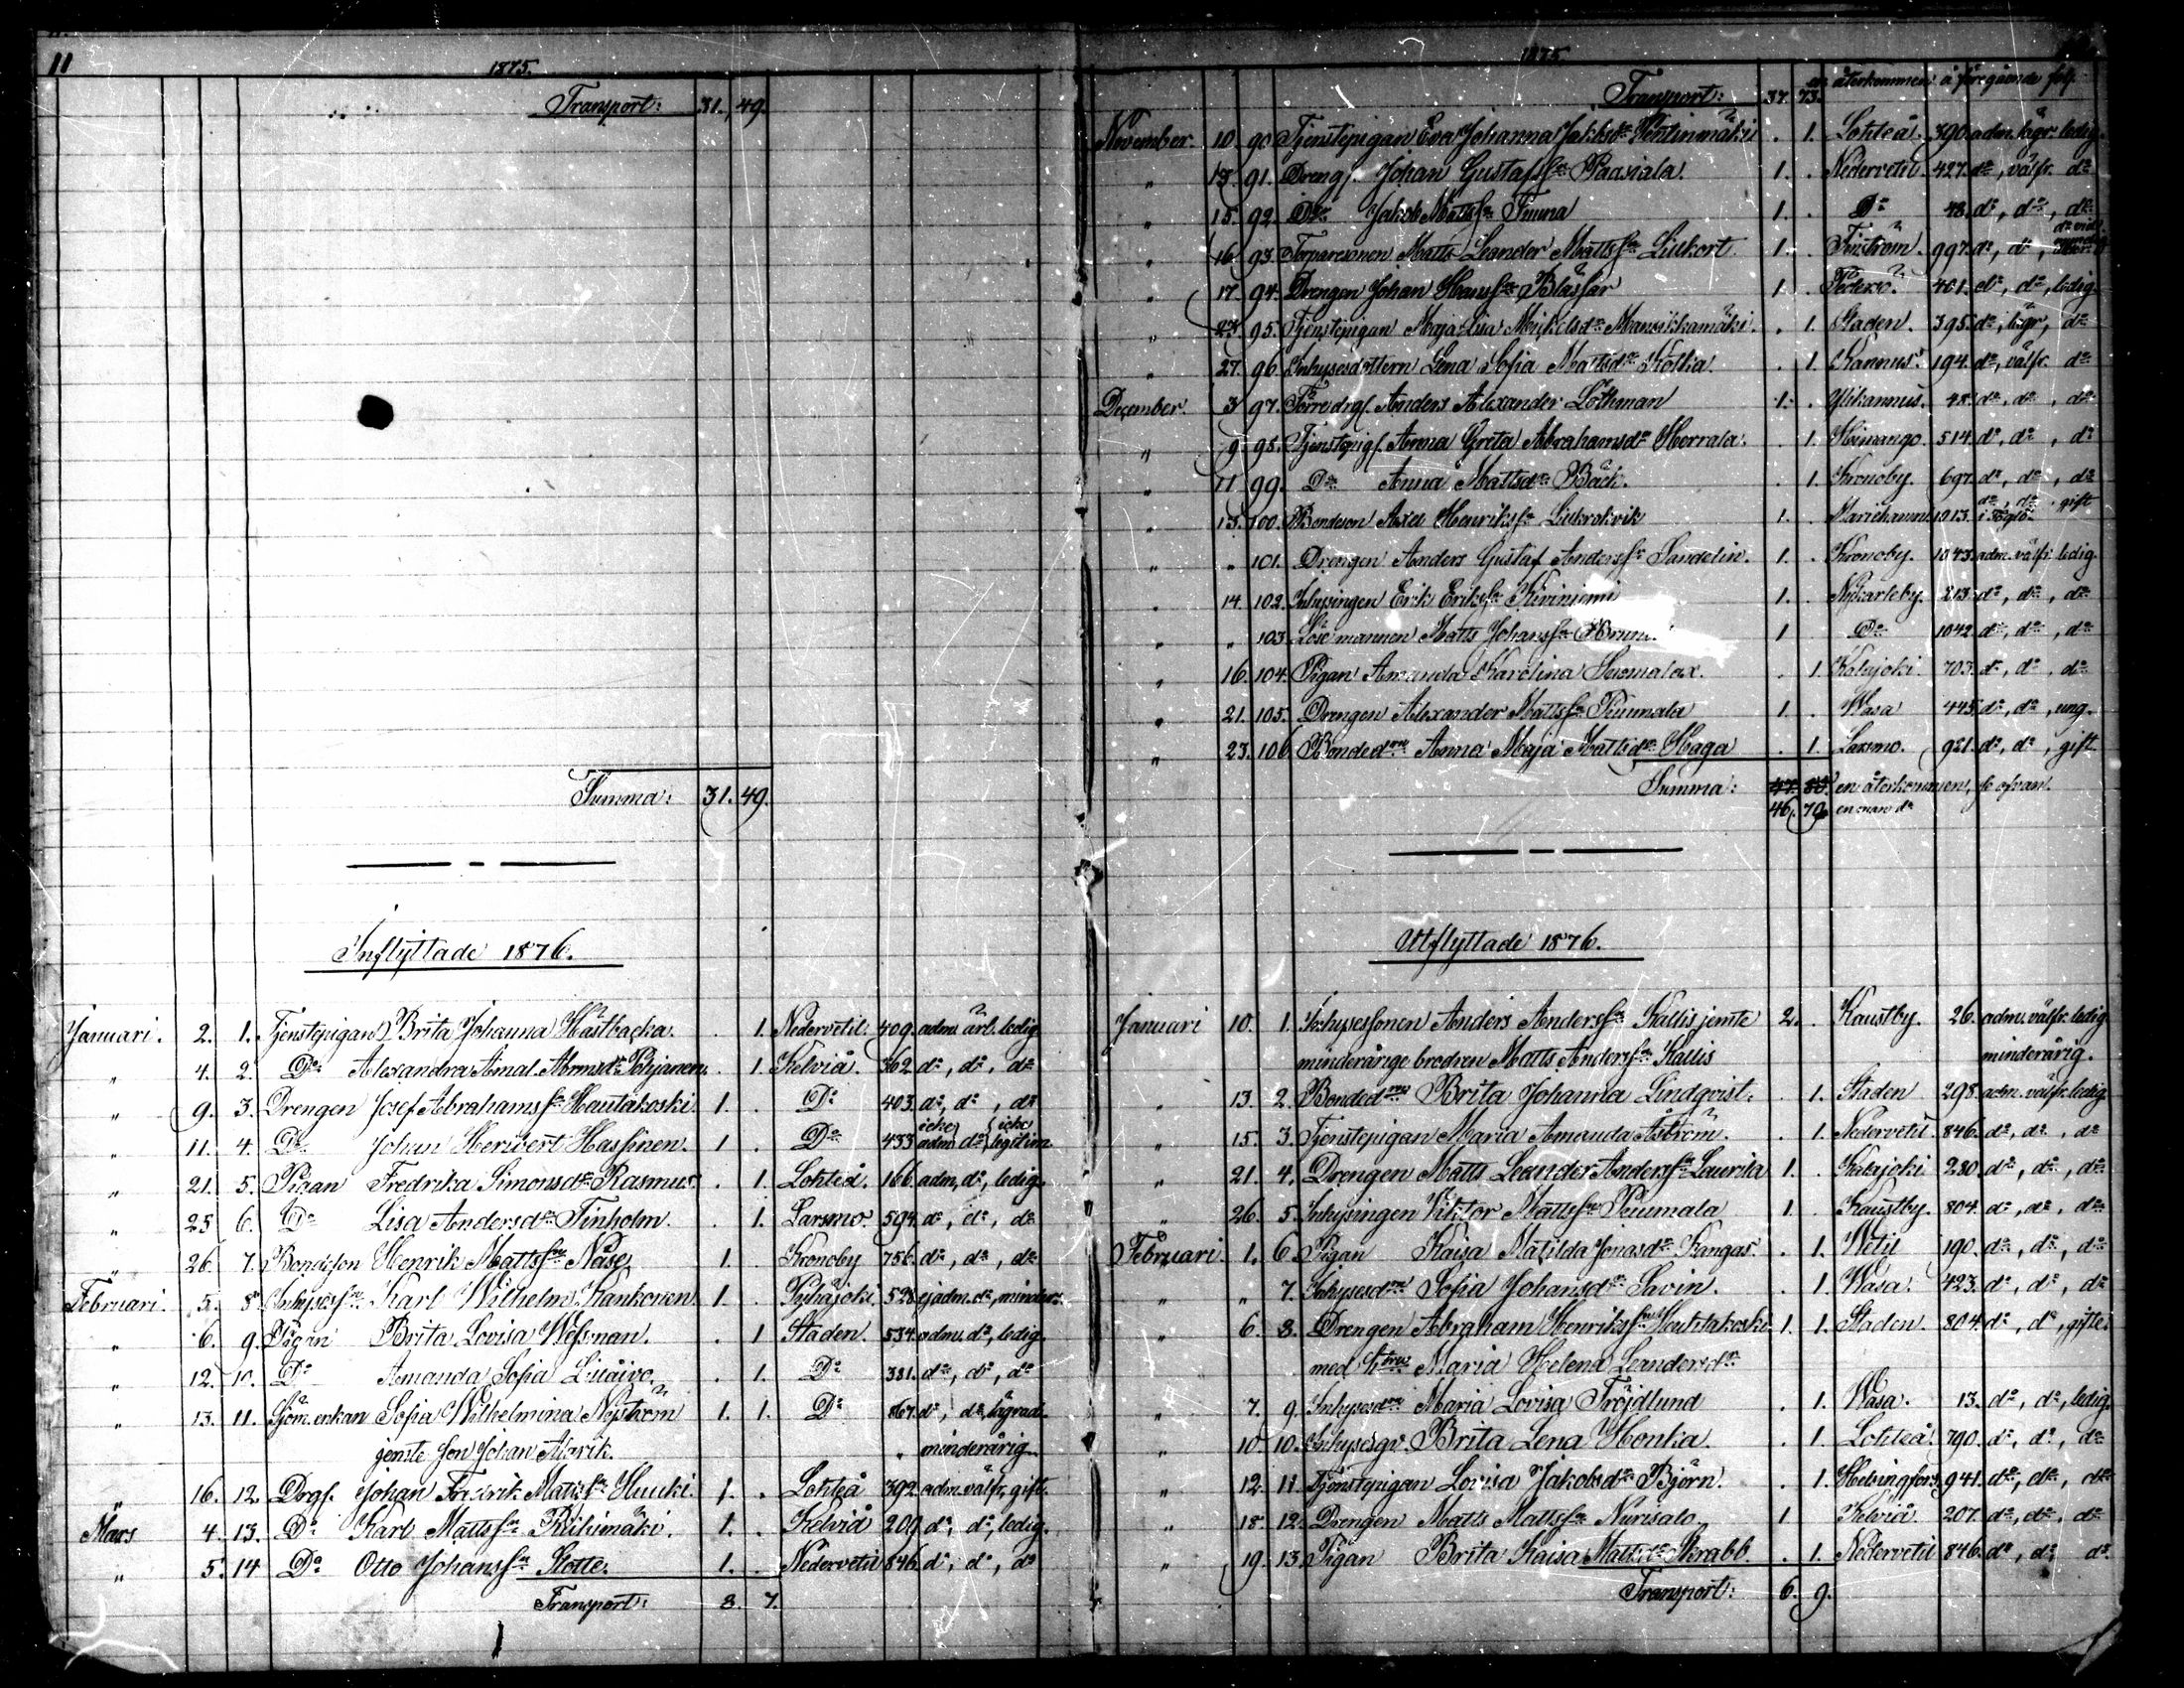 11
1875.
Transport: 31. 49.
Summa: 31. 49.
Inflyttade 1876.
Januari. 2. 1. Tjenstepigan Brita Johanna Hästbacka. . 1. Nedervetil. 409. adm. ärl. ledig.
" 4. 2. Do Alexandra Amal. Abrmsdr Pohjanen. . 1. Kelviå. 362. do, do, do
" 9. 3. Drengen Josef Abrahamsson Hautakoski 1. . Do 403. do, do, do
" 11. 4. Do Johan Heribert Hassinen. 1. . Do 433 icke adm. do, icke legitim.
" 21. 5. Pigan Fredrika Simonsdr Rasmus. . 1. Lohteå. 166. adm, do, ledig.
" 25 6. Do Lisa Andersdr Finholm. . 1. Larsmo. 594. do, do, do
" 26. 7. Bondeson Henrik Mattsson Näse. 1. . Kronoby 756. do, do, do
Februari. 5. 8. Inhysess. Karl Wilhelm Kankonen 1. . Pyhäjoki. 528. ej adm. do, minder.
" 6. 9. Pigan Brita Lovisa Wessman. . 1 Staden. 534. adm. do, ledig.
" 12. 10. Do Amanda Sofia . 1. Do 381. do, do, do
" 13. 11. Sjöm. enkan Sofia Wilhelmina Nyström 1. 1. Do 867. do, do, lägrad.
jemte son Johan Alarik. " minderårig.
" 16. 12. Drgs. Johan Fredrik Mattss. Huuki. 1. . Lohteå 392. adm. välfr. gift.
Mars 4. 13. Do Karl Mattsson Riihimäki. 1. . Kelviå 200. do, do, ledig.
" 5. 14 Do Otto Johansson Slotte. 1. . Nedervetil 846. do, do, do
Transport: 8. 7.
1875.
Transport: 37. 73. en återkommen å föregående fol.
November. 10. 90 Tjenstepigan Eva Johanna Jakobsdr Penttinmäki . 1. Lohteå. 390. adm. lägr. ledig.
" 13. 91. Drengs. Johan Gustafsson Paaviala. 1. . Nedervetil. 427. do, välfr. do
" 15. 92. Do Jakob Mattsson Tunna 1. . Do 48. do, do, do
" 16. 93. Torparesonen Matts Leander Mattsson Lillkort 1. . Finström. 997. do, do,
" 17. 94. Drengen Johan Hansson Blåsar 1. . Pedersö. 401. do, do, ledig.
" 23. 95. Tjenstepigan Maja Lisa Mickelsdr Mansikkamäki. . 1. Staden. 395. do, lägr, do
" 27. 96. Inhysesdottern Lena Sofia Mattsdr Kotka. . 1. Kannus. 194. do, välfr. do
December. 3. 97. Förre drgs. Anders Alexander Löthman 1. . Ylikannus. 48. do, do, do
" 9. 98. Tjenstepigs. Anna Greta Abrahamsdr Herrala. . 1. Himango. 514. do, do, do
" 11 99. Do Anna Mattsdr Bäck. . 1. Kronoby. 697. do, do, do
" 13. 100. Bondeson Axel Henriksson Lillrahvik 1. . Mariehamn. 1013. do, do i Föglö. gift
" " 101. Drengen Anders Gustaf Andersson Sandelin. 1. . Kronoby. 1043. adm. välfr. ledig.
" 14. 102. Inhysingen Erik Eriksson Kiviniemi 1. . Nykarleby. 213. do, do, do
" " 103. Löse mannen Matts Johansson 1 Do 1042 do, do, do
" 16. 104. Pigan Amanda Karolina Sursmalax. . 1. Kalajoki. 703. do, do, do
" 21. 105. Drengen Alexander Mattsson Puumala 1. . Wasa 445. do, do, ung.
" 23. 106. Bondedotter Anna Maja Mattsdr Haga . 1. Larsmo. 921. do, do, gift.
Summa: 47. 80. en återkommen, se ofvan.
46. 79. en man do
Utflyttade 1876.
Januari 10. 1. Inhysessonen Anders Andersson Kallis jemte 2. . Kaustby. 26. adm. välfr. ledig.
minderårige brodren Matts Andersson Kallis minderårig.
" 13. 2. Bondedotter Brita Johanna Lindqvist. . 1. Staden 298. adm. välfr. ledig.
" 15. 3. Tjenstepigan Maria Amanda Åström. . 1. Nedervetil 846. do, do, do
" 21. 4. Drengen Matts Leander Andersson Laurila 1. . Kalajoki 280. do, do, do
" 26. 5. Inhysingen Viktor Mattsson Puumala 1. . Kaustby. 804. do, do, do
Februari. 1. 6. Pigan Kaisa Matilda Jonasdr Kangas. . 1. Wetil 190. do, do, do
" " 7. Inhysesdr Sofia Johansdr Savin. . 1. Wasa. 423. do, do, do
" 6. 8. Drengen Abraham Henriksson Hautakoski 1. 1. Staden. 804. do, do, gifte.
med hustru Maria Helena Leandersdr
" 7. 9. Inhysesdr Maria Lovisa Fröjdlund . 1. Wasa. 13. do, do, ledig.
" 10. 10. Inhysesqv. Brita Lena Honka. . 1. Lohteå. 790. do, do, do
" 12. 11. Tjenstepigan Lovisa Jakobsdr Björn. . 1. Helsingfors. 941. do, do, do
" 18. 12. Drengen Matts Mattsson Nurisalo. 1 Kelviå. 207. do, do, do
" 19. 13. Pigan Brita Kaisa Mattsdr Skrabb. . 1. Nedervetil 846. do, do, do.
Transport: 6. 9.